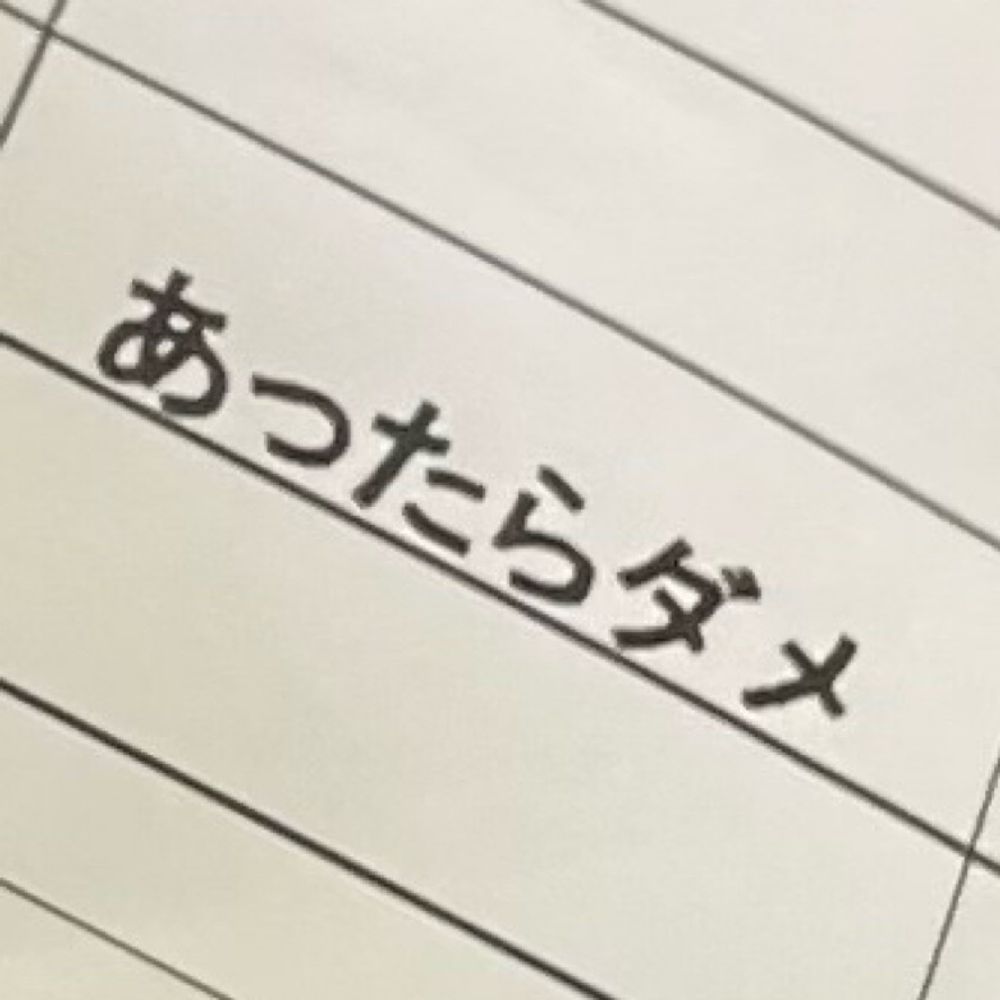 あったらダメ